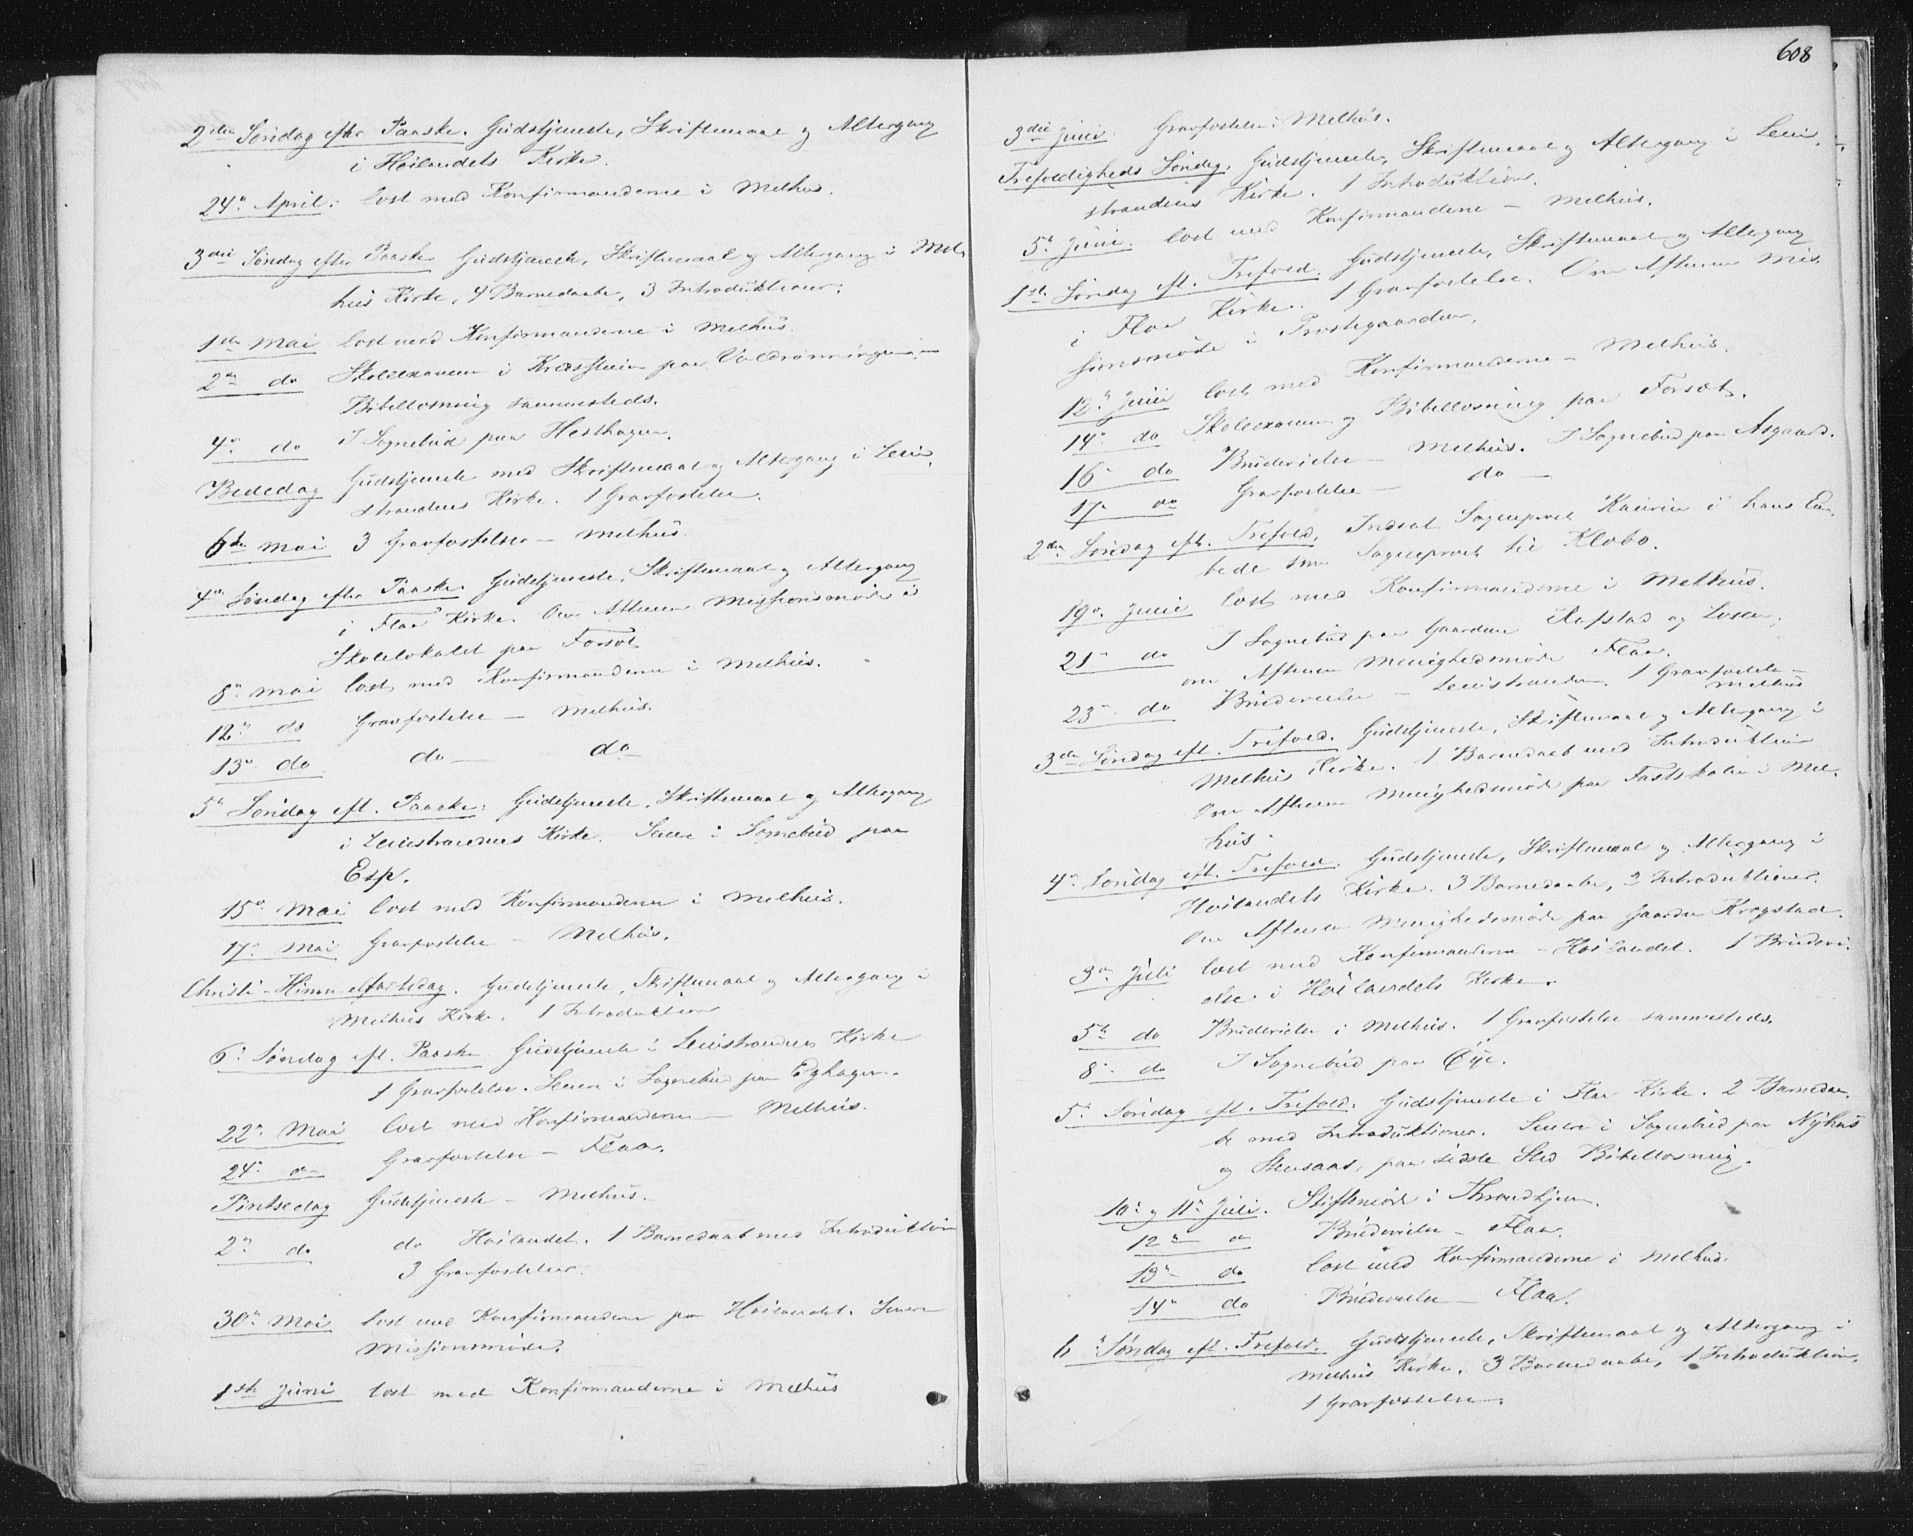 2den Søndag efter Paaske. Gudstjeneste, Skriftemaal og Altergang
i Høilandets Kirke.
24de April: læst med Konfirmanderne i Melhus.
3die Søndag efter Paaske Gudstjeneste, Skriftemaal og Altergang i Mel-
hus Kirke, 4 Barnedaabe, 3 Introduktioner.
1ste Mai læst med Konfirmanderne i Melhus.
2den do Skoleexamen i Kredsskolen paa
Bibellæsning sammesteds.
4de do I Sognebud paa Hesthagen.
Bededag Gudstjeneste med Skriftemaal og Altergang i Lein-
strandens Kirke. 1 Gravfæstelse.
6te Mai 3 Gravfæstelser – Melhus.
4de Søndag efter Paaske Gudstjeneste, Skriftemaal og Altergang
i Flaa Kirke. Om Aftenen Missionsmøde i
Skolelokalet paa Forsæt
8de Mai læst med Konfirmanderne i Melhus.
12te do Gravfæstelse – Melhus.
13de do do — do
5te Søndag eft. Paaske: Gudstjeneste, Skriftemaal og Altergang
i Leinstrandens Kirke. Senere i Sognebud paa
Esp.
15de Mai læst med Konfirmanderne i Melhus.
17de Mai Gravfæstelse – Melhus.
Christi-Himmelfartsdag. Gudstjeneste, Skriftemaal og Altergang i
Melhus Kirke. 1 Introduktion
6te Søndag eft. Paaske Gudstjeneste i Leinstrandens Kirke
1 Gravfæstelse. Senere i Sognebud paa Eghagen.
22de Mai læst med Konfirmanderne – Melhus.
24de do Gravfæstelse – Flaa.
Pintsedag Gudstjeneste – Melhus.
2den do do Høilandet. 1 Barnedaab med Introduktion
3 Gravfæstelser.
30te Mai læst med Konfirmanderne paa Høilandet. Senere
Missionsmøde.
1ste Juni læst med Konfirmanderne i Melhus
608
3die Juni: Gravfæstelse i Melhus.
Trefoldigheds Søndag. Gudstjeneste, Skriftemaal og Altergang i Lein-
strandens Kirke. 1 Introduktion.
5te Juni. læst med Konfirmanderne – Melhus.
1ste Søndag eft. Trefold. Gudstjeneste, Skriftemaal og Altergang
i Flaa Kirke. 1 Gravfæstelse. Om Aftenen Mis-
sionsmøde i Prostegaarden.
12te Juni læst med Konfirmanderne – Melhus.
14de do Skoleexamen og Bibellæsning paa Forsæt.
16de do Brudevielse – Melhus. I Sognebud paa Asgaard.
17de do Gravfæstelse – do –
2den Søndag eft. Trefold. Indsat Sognepræst Kaurin i hans Em-
bede som Sognepræst til Klæbo.
19de Juni læst med Konfirmanderne i Melhus.
21de do I Sognebud paa Gaardene Rafstad og Losen.
om Aftenen Menighedsmøde Flaa.
23de do Brudevielse – Leinstranden. 1 Gravfæstelse –
Melhus
3die Søndag eft. Trefold. Gudstjeneste, Skriftemaal og Altergang i
Melhus Kirke. 1 Barnedaab med Introduktion
Om Aftenen Menighedsmøde paa Fastskolen i Mel-
hus.
4de Søndag eft. Trefold. Gudstjeneste, Skriftemaal og Altergang i
Høilandets Kirke. 3 Barnedaabe, 2 Introduktioner.
Om Aftenen Menighedsmøde paa Gaarden Krogstad.
3die Juli læst med Konfirmanderne – Høilandet. 1 Brudevi-
else i Høilandets Kirke.
5te do Brudevielse i Melhus. 1 Gravfæstelse sammesteds.
8de do I Sognebud paa Øye.
5te Søndag eft. Trefold: Gudstjeneste i Flaa Kirke. 2 Barnedaa-
be med Introduktioner. Senere i Sognebud paa Nyhus
og Stensaas, paa sidste Sted Bibellæsning.
10de og 11te Juli. Stiftsmøde i Throndhjem.
12te do Brudevielse – Flaa.
13de do læst med Konfirmanderne i Melhus.
14de do Brudevielse – Flaa.
6te Søndag eft. Trefold. Gudstjeneste, Skriftemaal og Altergang i
Melhus Kirke. 3 Barnedaabe, 1 Introduktion,
1 Gravfæstelse.